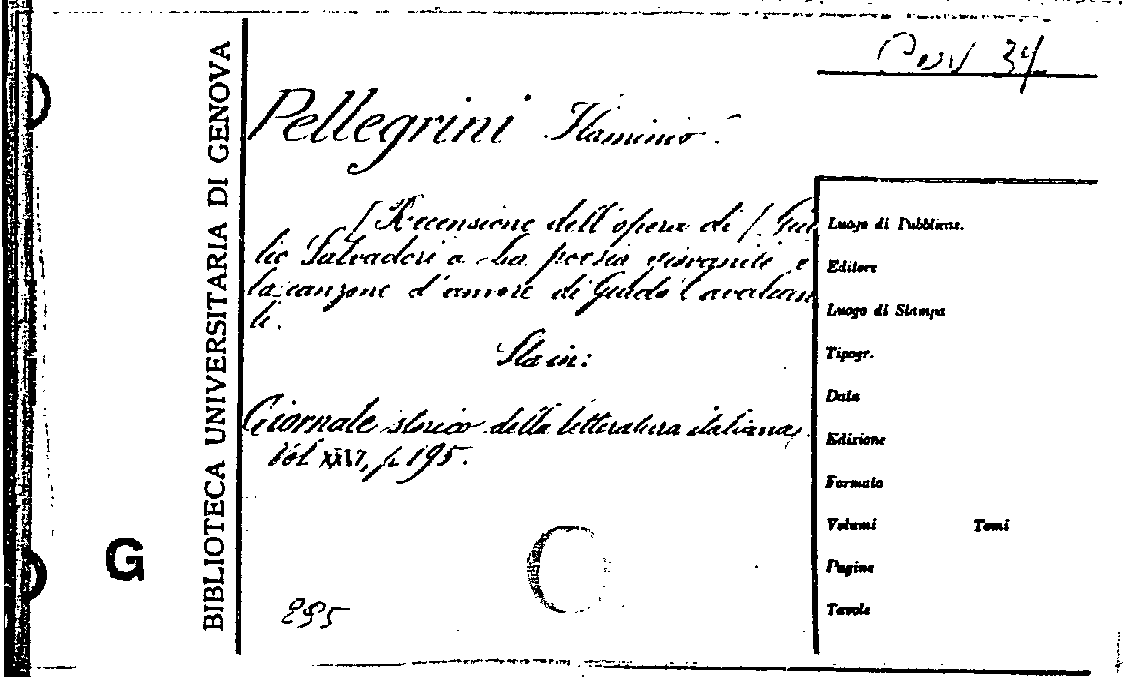 34
Pellegrini Flaminio.
[Recensione dell'opera di / Giu
lio Salvadori La poesia giovanile e
la canzone d'amore di Guido Cavalcan
ti.
Sta in:
Giornale storico della letteratura italiana,
Vol p. 195.
295
C
G
BIBLIOTECA UNIVERSITARIA DI GENOVA
Luogo di Pubblicaz.
Editore
Luogo di Stampa
Tipogr.
Data
Edizione
Formato
Volumi Tomi
Pagine
Tavole